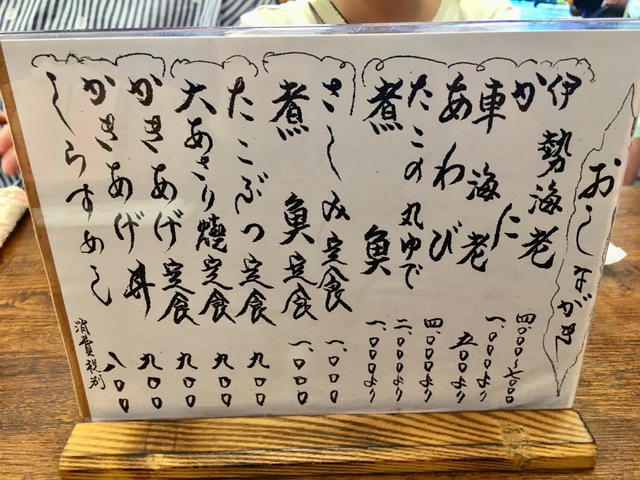 おしながき
伊勢海老 四、〇〇〇〜七〇〇〇
かに 一、〇〇〇より
車海老 五〇〇より
あわび 四、〇〇〇より
たこの丸ゆで 二、〇〇〇より
煮魚 一、〇〇〇より
さしみ定食 一、〇〇〇
煮魚定食 一、〇〇〇
たこぶつ定食 九〇〇
大あさり燒定食 九〇〇
かきあげ定食 九〇〇
かきあげ丼 九〇〇
しらすめし 八〇〇
消費税別